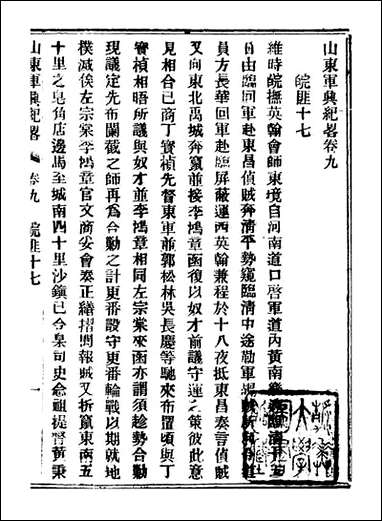 山東軍興紀畧卷九
皖匪十七
維時皖撫英翰會師東境自河南道口啓軍道內黃南樂
日由臨囘軍赴東昌偵賊奔清平勢窺臨清中途勒軍
員方長華囘軍赴臨屏蔽運西英翰兼程於十八夜抵東昌奏言偵賊
又向東北禹城奔竄並接李鴻章函復以奴才前議守運之策彼此意
見相合已商丁寶楨先督東軍並郭松林吳長慶等馳來布置頃與丁
寶楨相晤所議與奴才並李鴻章相同左宗棠來函亦謂須趁勢合勦
現議定先布闌截之師再為合勦之計更番設守更番輪戰以期就地
撲滅俟左宗棠李鴻章官文商妥會奏正繕摺間報賊又折竄東南五
十里之皂角店邊馬至城南四十里沙鎮已令臬司史念祖提督黃秉
山東軍興紀畧 卷九 皖匪十七 一